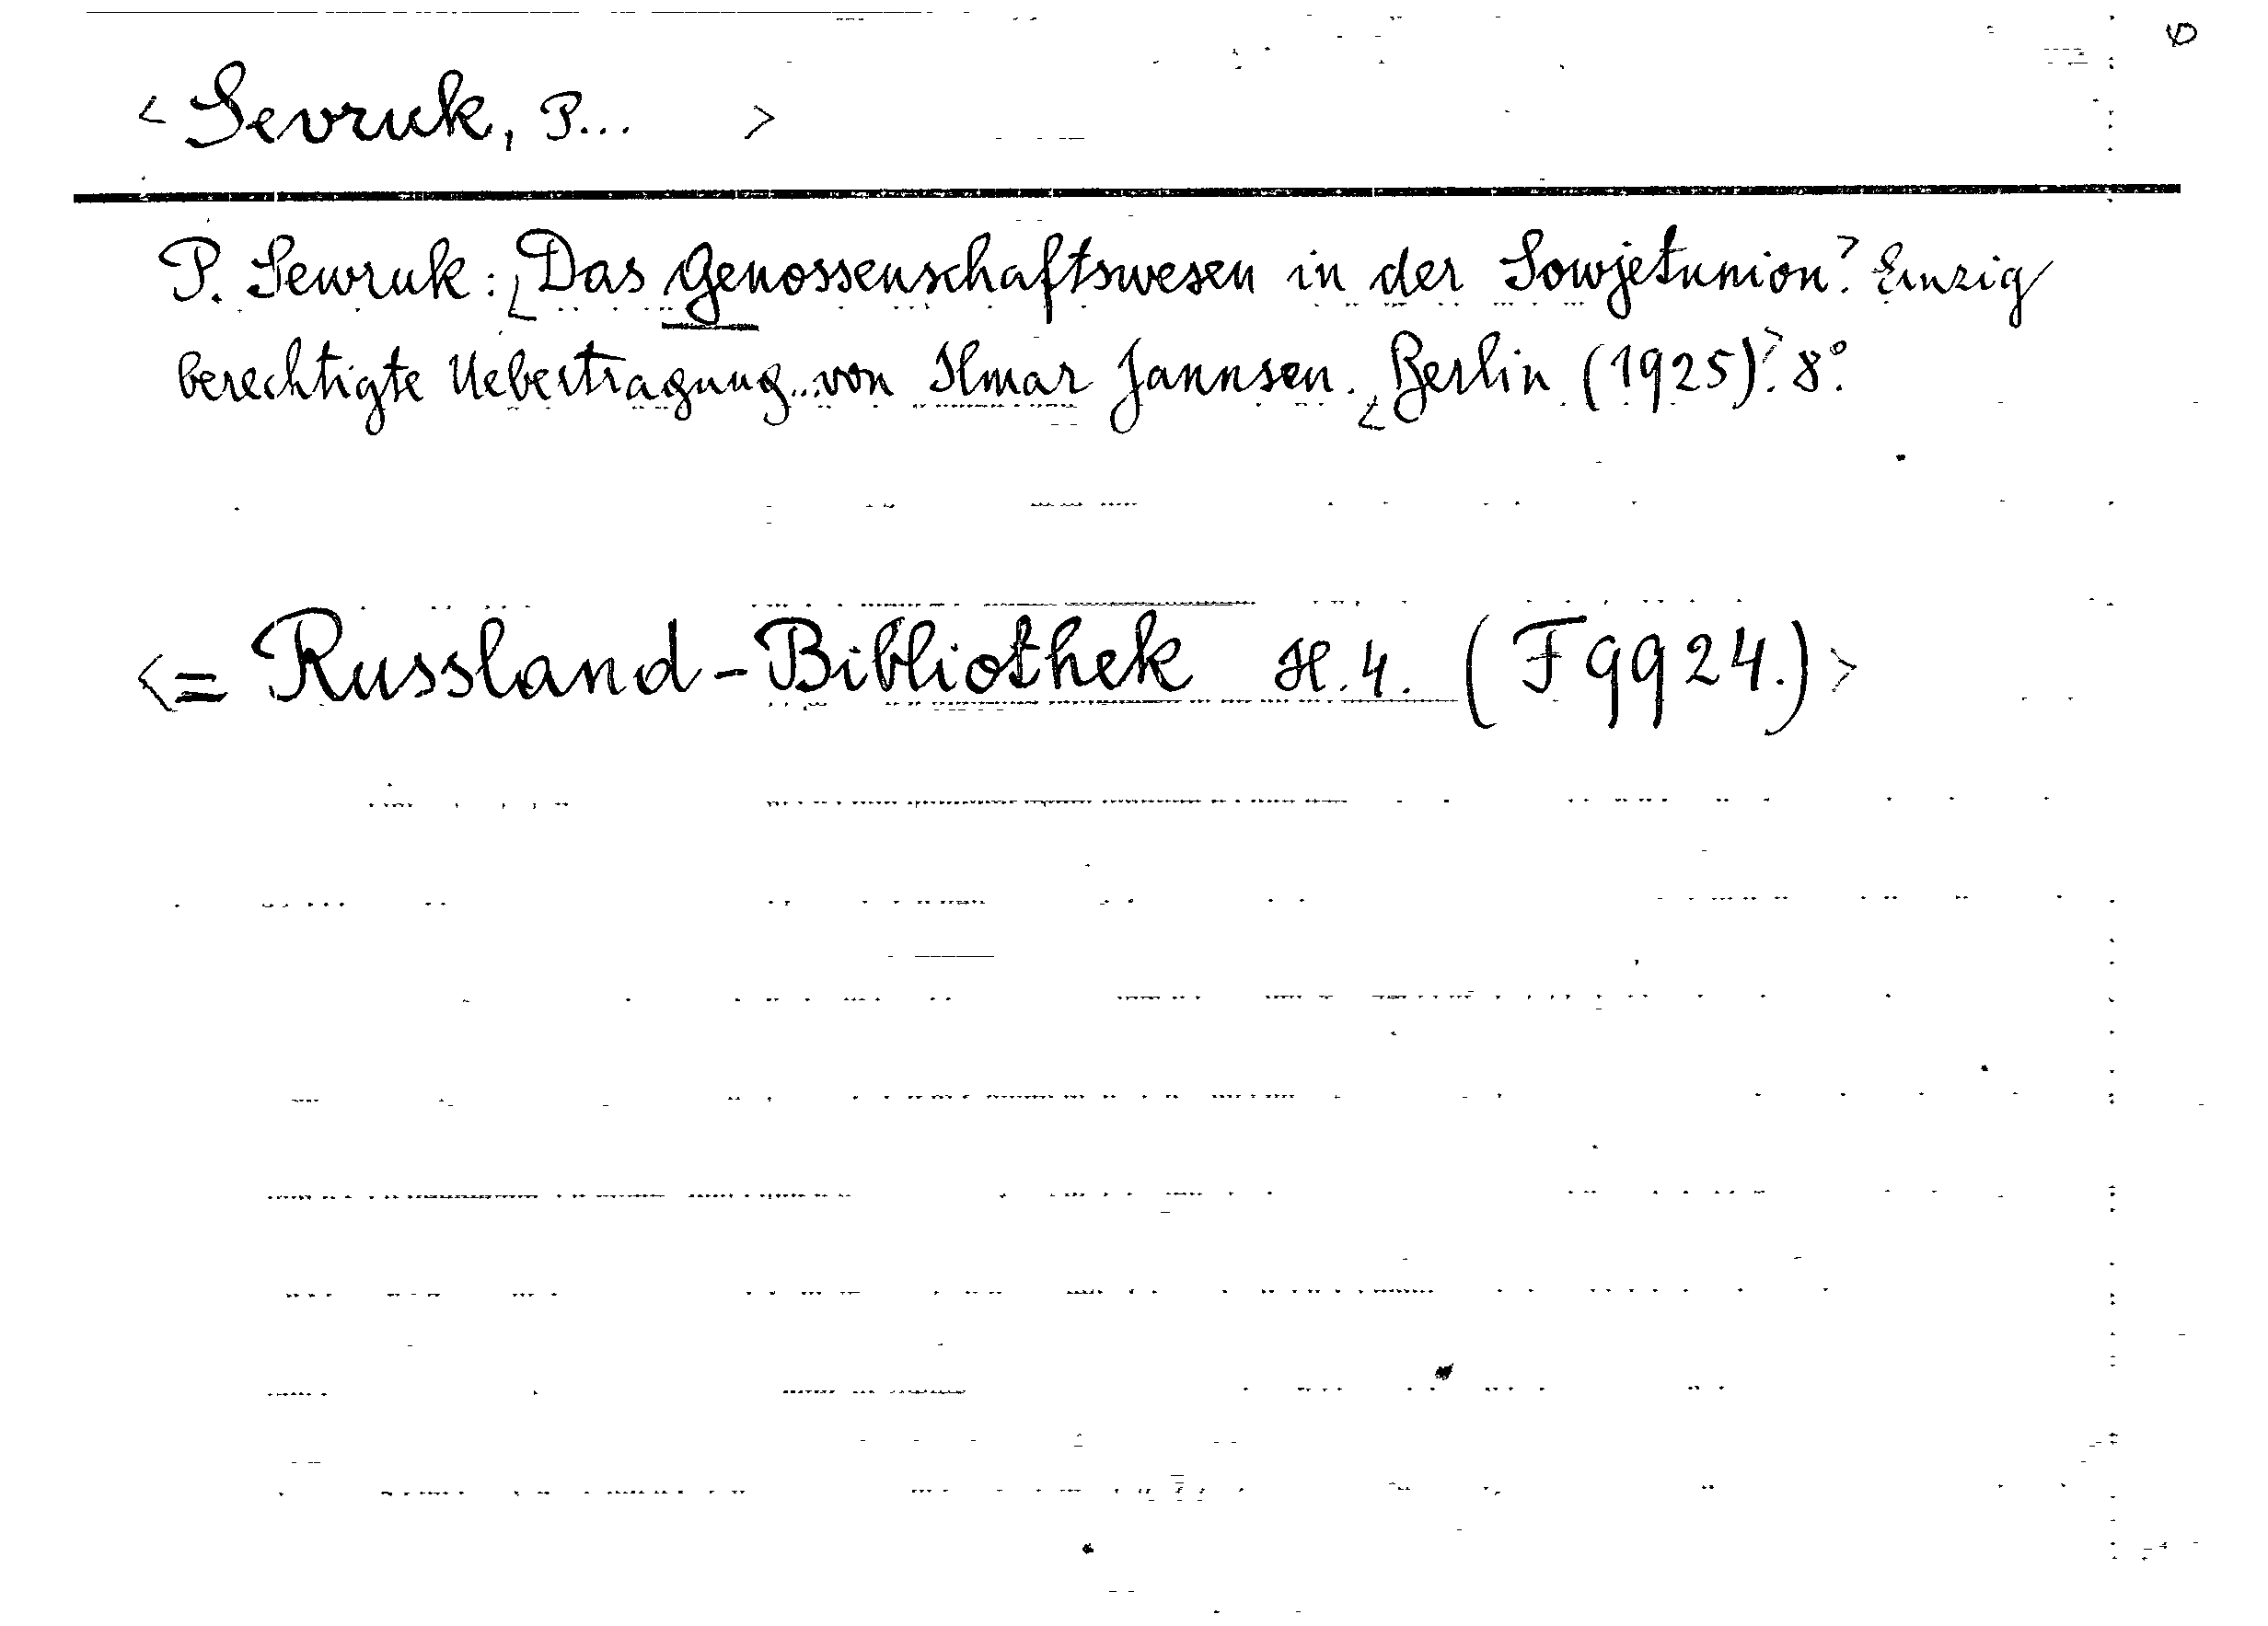 < Sevruk, P... >
P. Sewruk: <Das Genossenschaftswesen in der Sowjetunion.> Einzig
berechtigte Uebertragung...von Ilmar Jannsen. <Berlin (1925).> 8°.
<= Russland-Bibliothek H.4. (F9924.)>